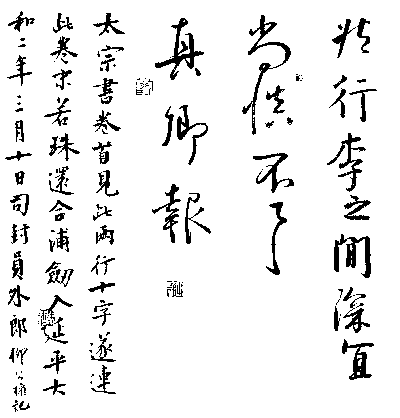 行李之間深宜
尚慎不
真卿報
太宗書卷首見此兩行十字遂連
此卷末若珠還合浦劒入延平大
和二年三月十日司封員外郎柳公權記